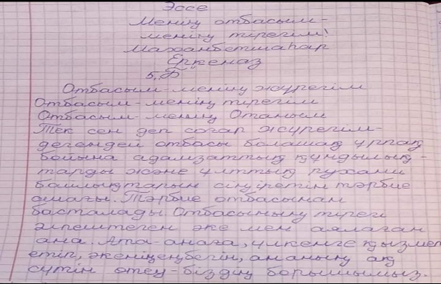 Эссе
Менің отбасым-
менің тірегім!
Маханбетшаһар
Еркеназ
5 "Ә"
Отбасым-менің жүрегім
Отбасым-менің тірегім
Отбасым-менің Отаным
Тек сен деп соғар жүрегім-
дегендей отбасы болашақ ұрпақ
бойына адамзаттық құндылық-
тарды және ұлттық рухани
байлықтарын сіңіретін тәрбие
ошағы. Тәрбие отбасынан
басталады. Отбасының тірегі
әлпештеген әке мен аялаған
ана. Ата-анаға, үлкенге қызмет
етіп, әкенің еңбегін, ананың ақ
сүтін өтеу-біздің борышымыз.